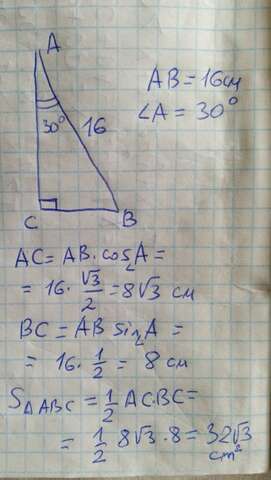 A
30° 16
C B
AB = 16см
∠A = 30°
AC = AB · cos∠A =
= 16 · √3/2 = 8√3 см
BC = AB sin∠A =
= 16 · 1/2 = 8 см
S△ABC = 1/2 AC·BC =
= 1/2 8√3 · 8 = 32√3 cm²